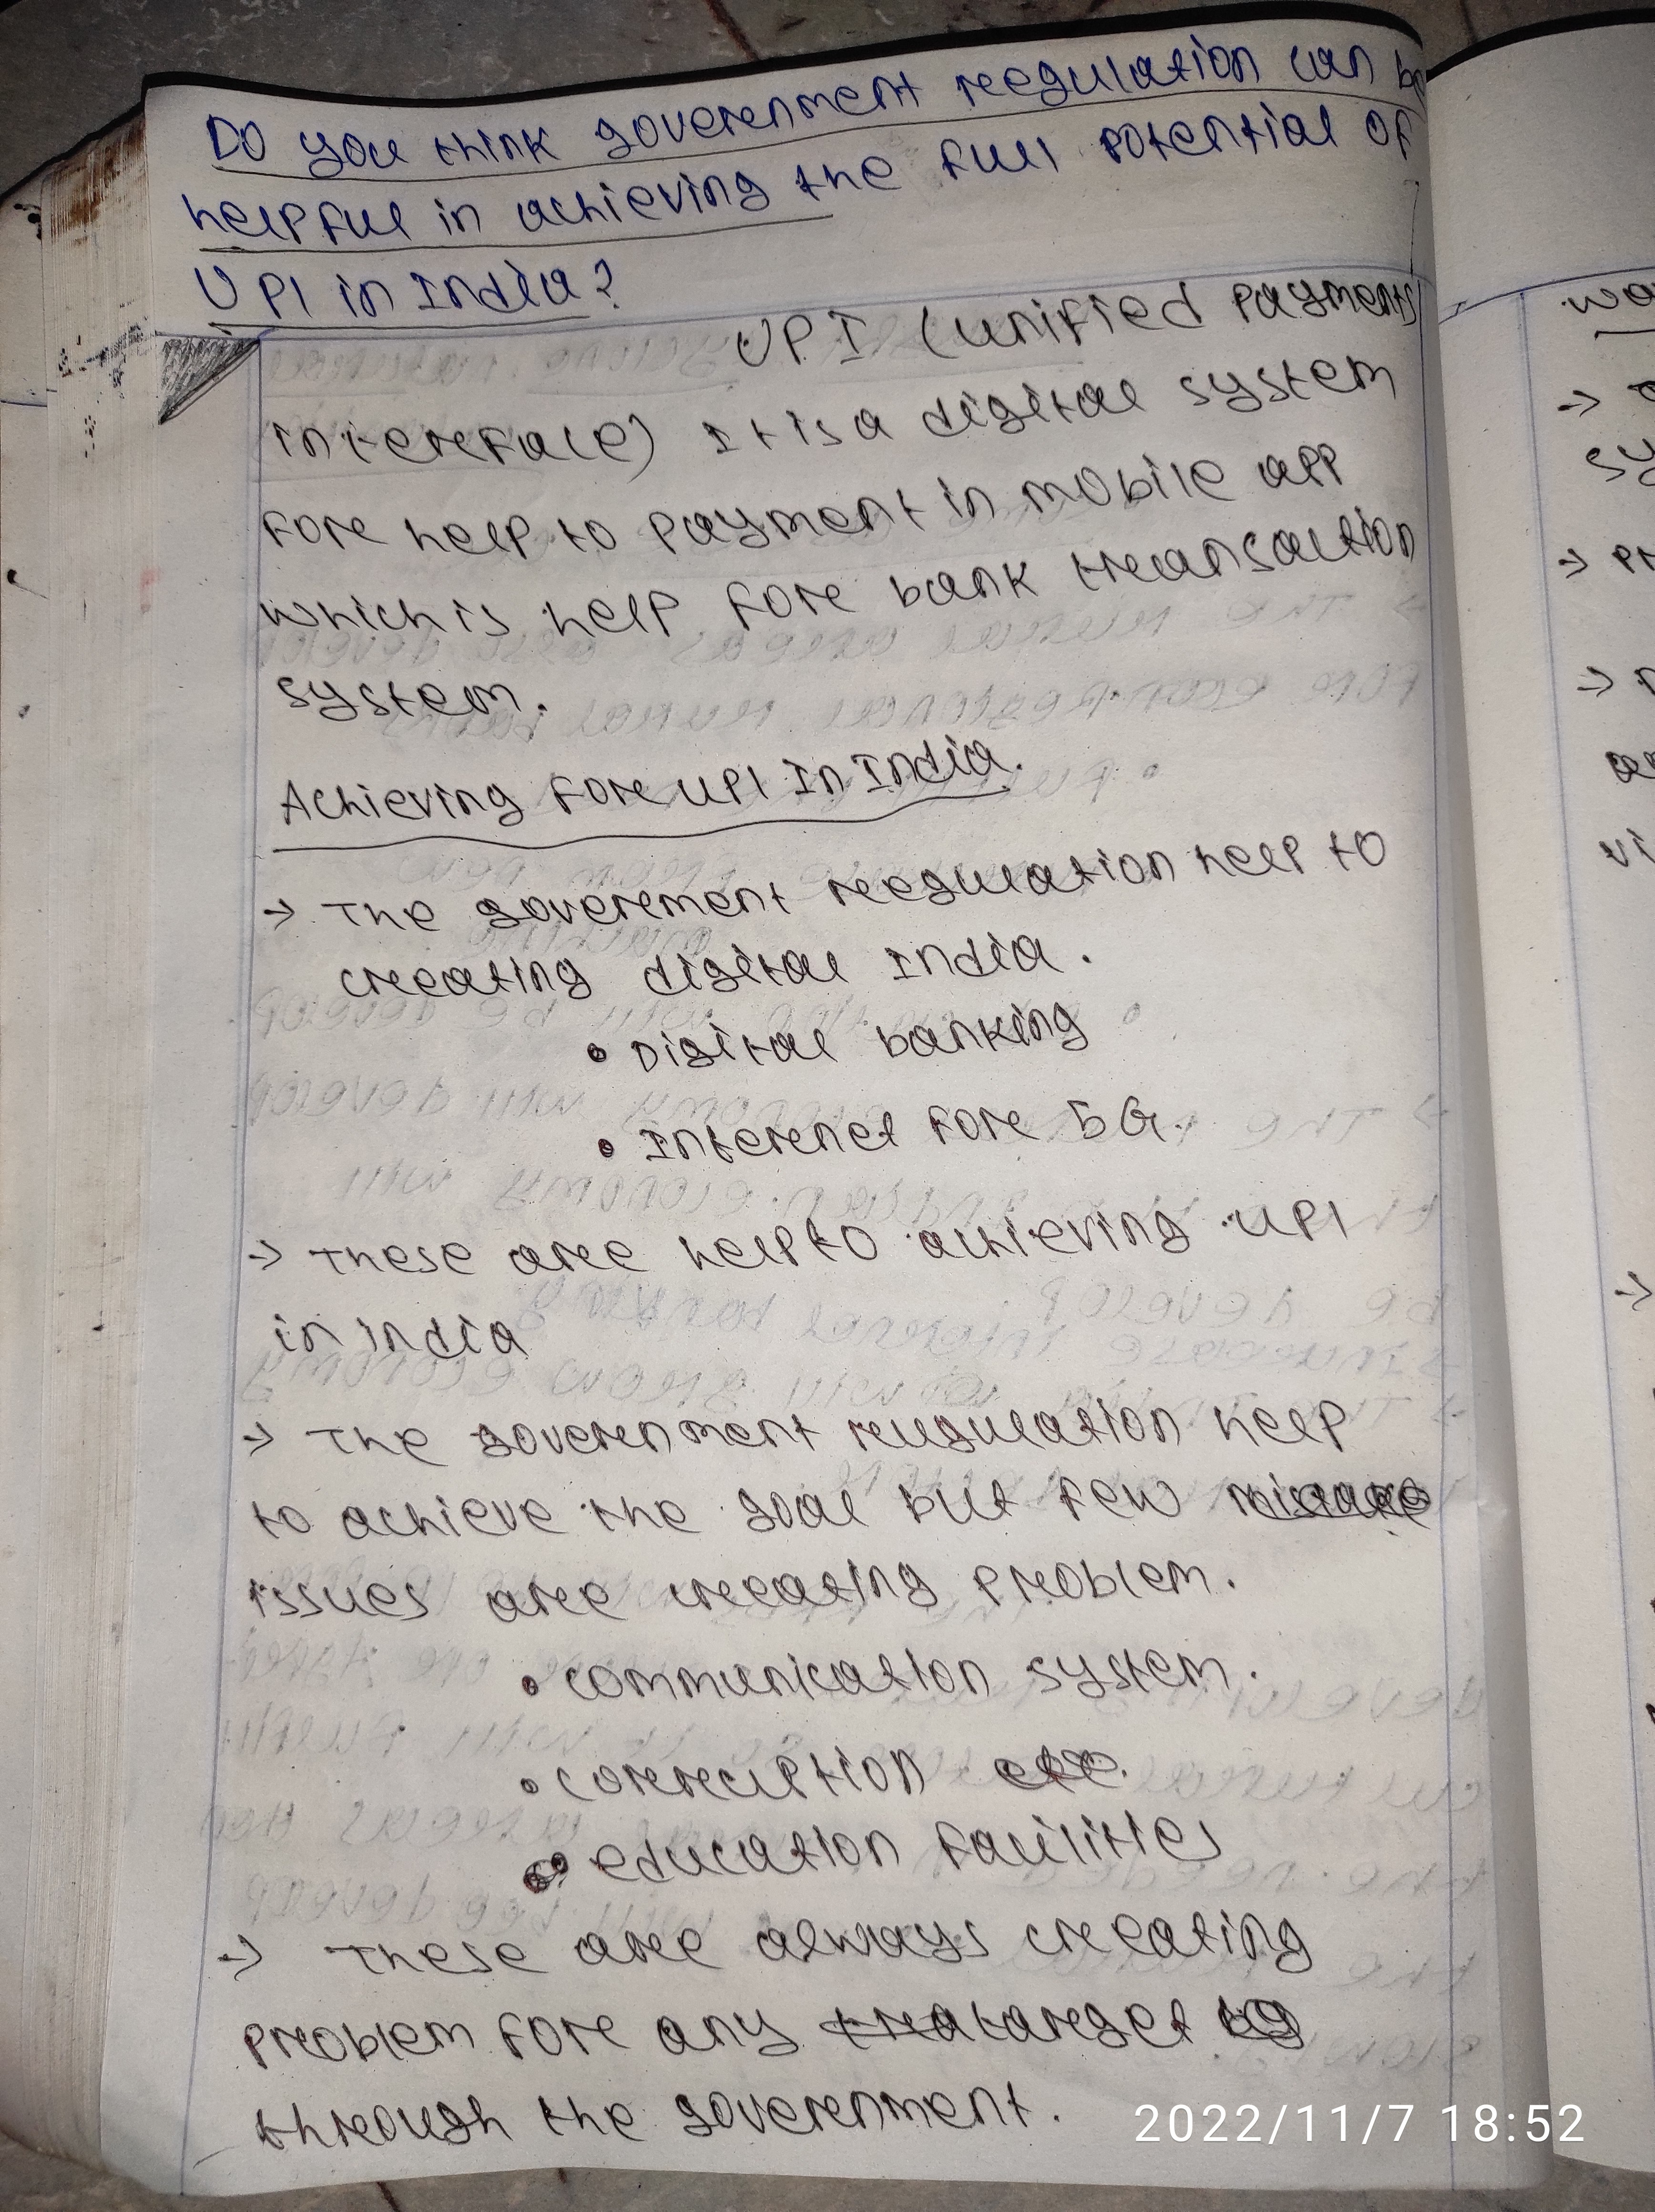 Do you think goverenment reegulation can be
helpful in achieving the full potential of
UPI in India?
UPI (unified payments
intereface) It is a digital system
fore help to payment in mobile app
which is help fore bank transaction
system.
Achieving fore UPI in India.
→ The goverement reegulation help to
creating digital India.
• Digital banking
• Interenet fore 5G.
→ These aree help to achieving UPI
in india
→ The goverenment reugulation help
to achieve the goal but few
issues aree creating problem.
• communication system.
• correcuption etc.
• education facilities
→ These aree always creating
problem fore any tareget
through the goverenment.
wo
→
sy
→ pr
→
vi
→
2022/11/7 18:52